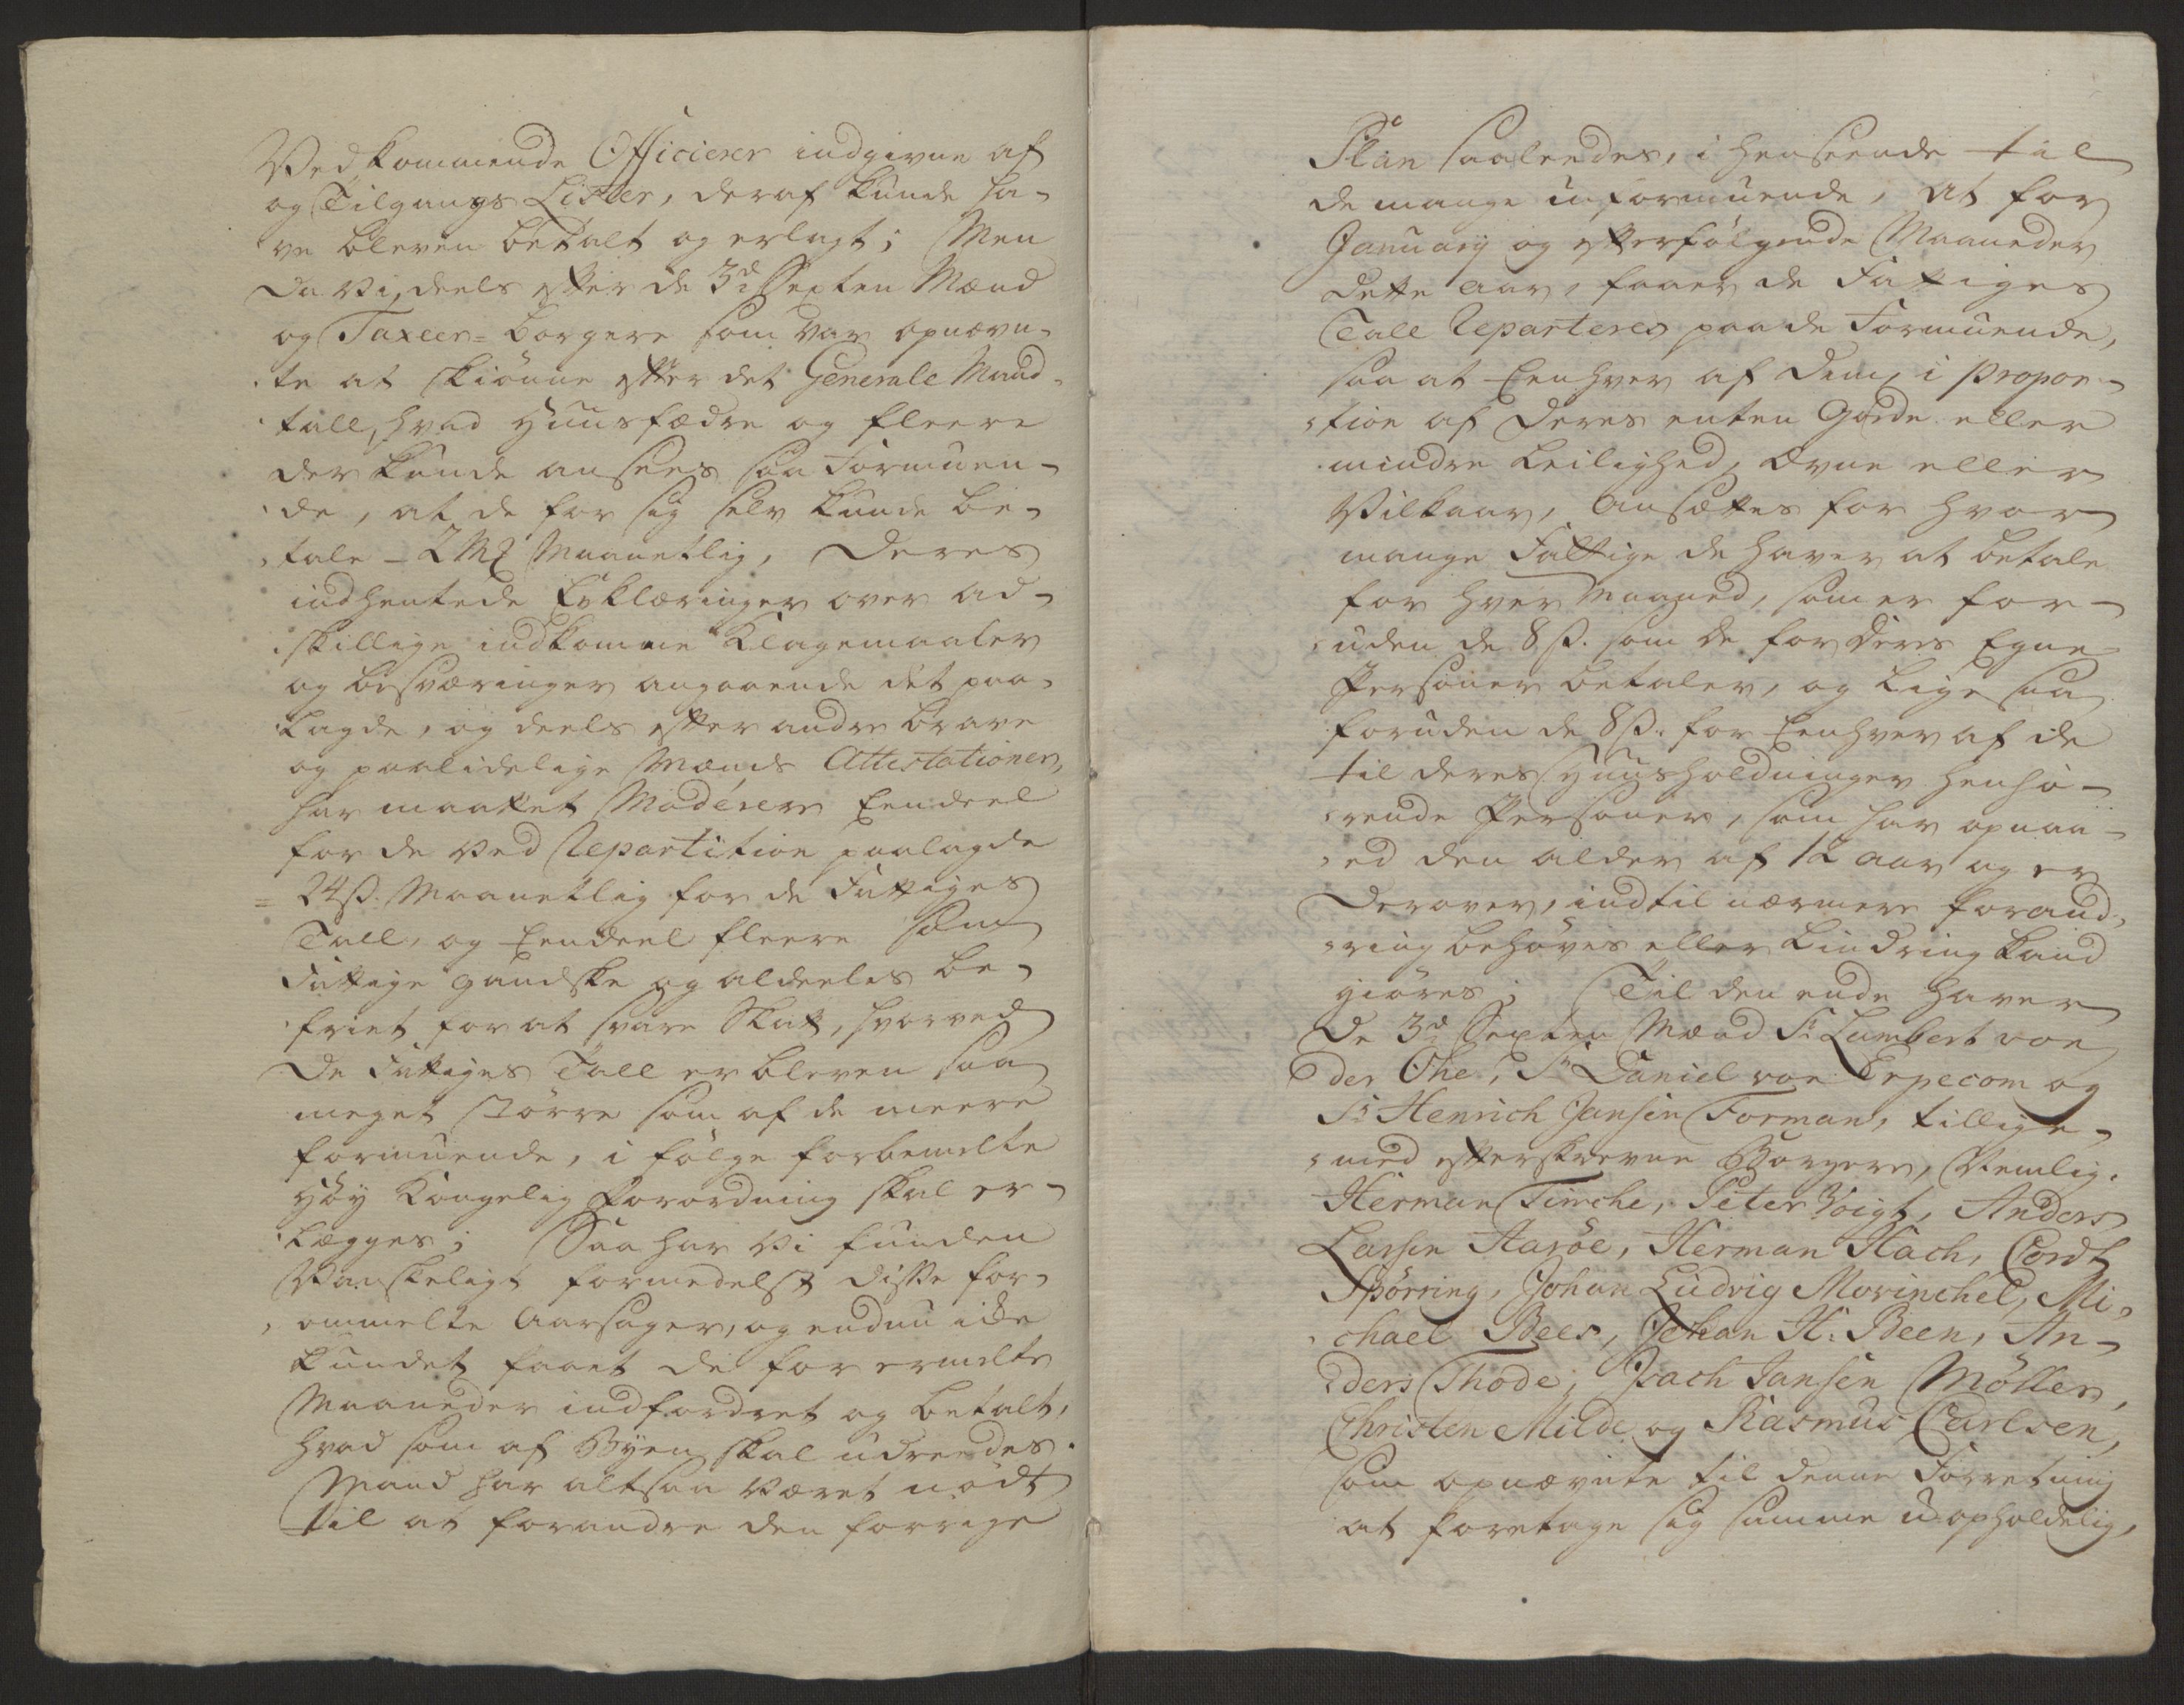 Vedkommende Officierer indgivne af
og Tilgangs Lister, deraf kunde ha-
ve bleven betalt og erlagt; Men
da vi, deels efter de 3de Sexten Mænd
og Taxeer-borgere som var opnævn-
te at skiönne efter det Generale Mand-
tall, hvad Huusfædre og fleere
der kunde ansees saa Formuen-
de, at de for sig selv kunde be-
tale - 2 Mk Maanetlig, Deres
indhentede Erklæringer over ad-
skillige indkomne Klagemaaler
og besværinger angaaende det paa-
lagde, og deels efter andre brave
og paalidelige Mænds Attestationer,
har maattet Moderere Eendeel
for de ved Repartition paalagde
24 ß. Maanetlig for de Fattiges
Tall, og Eendeel fleere som
Fattige gandske og aldeeles be-
friet for at svare Skatt, hvorved
De Fattiges Tall er bleven saa
meget större som af de meere
formuende, i fölge forbemelte
Höy Kongelig Forordning skal er-
lægges; Saa har vi funden
Vanskeligt formedelst disse for-
ommelte Aarsager, og endnu icke
kundet faaet de for ermelte
Maaneder indfordret og betalt,
hvad som af Byen skal udreedes.
Mand har altsaa været nödt
til at forandre den forrige
Plan saaleedes, i henseende til
de mange uformuende, at for
January og efterfölgende Maaneder
dette Aar, faaer de Fattiges
Tall Reparteres paa de Formuende,
saa at Eenhver af dem, i propor-
tion af deres enten Gode eller
mindre Leilighed, Evne eller
Vilkaar, Ansættes for hvor
mange Fattige de haver at betale
for hver Maaned, som er for-
uden de 8 ß. som de for deres Egne
Personer betaler, og lige saa
foruden de 8 ß. for Eenhver af de
til deres Huusholdninger henhö-
rende Personer, som har opnaa-
ed den alder af 12 Aar og er
derover, indtil nærmere forand-
ring behöves eller Lindring kand
giöres; Til den ende haver
De 3de Sexten Mænd Sr. Lambert von
der Ohe, Sr. Daniel von Erpecom og
Sr. Henrich Jansen Forman, tillige-
med efterskrevne Borgere, Nemlig.
Herman Timche, Peter Voigt, Anders
Larsen Aaröe, Herman Hach, Cordt
Spörring, Johan Ludvig Morinchel, Mi-
chael Bees, Johan H. Been, An-
ders Thode, Joach Jansen Möller,
Christen Milde og Rasmus Carlsen,
som opnævnte til denne Forretning
at foretage sig samme uopholdelig,